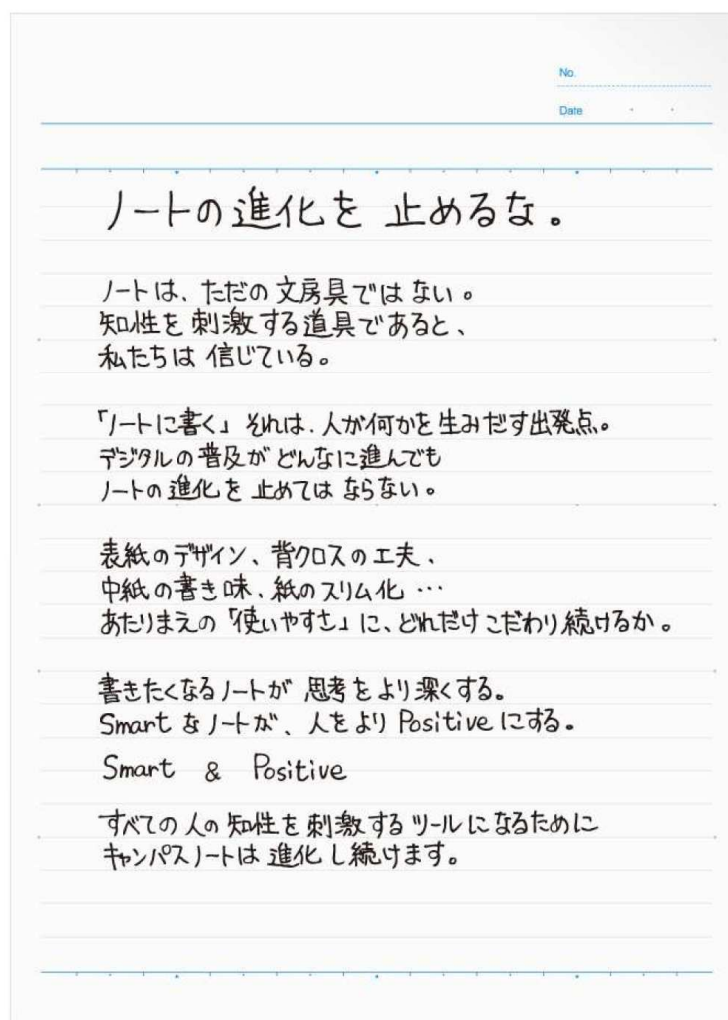 No.
Date
ノートの進化を 止めるな。
ノートは、ただの文房具ではない。
知性を刺激する道具であると、
私たちは信じている。
「ノートに書く」それは、人が何かを生みだす出発点。
デジタルの普及がどんなに進んでも
ノートの進化を止めてはならない。
表紙のデザイン、背クロスの工夫、
中紙の書き味、紙のスリム化…
あたりまえの「使いやすさ」に、どれだけこだわり続けるか。
書きたくなるノートが 思考をより深くする。
Smartなノートが、人をよりPositiveにする。
Smart & Positive
すべての人の知性を刺激するツールになるために
キャンパスノートは進化し続けます。